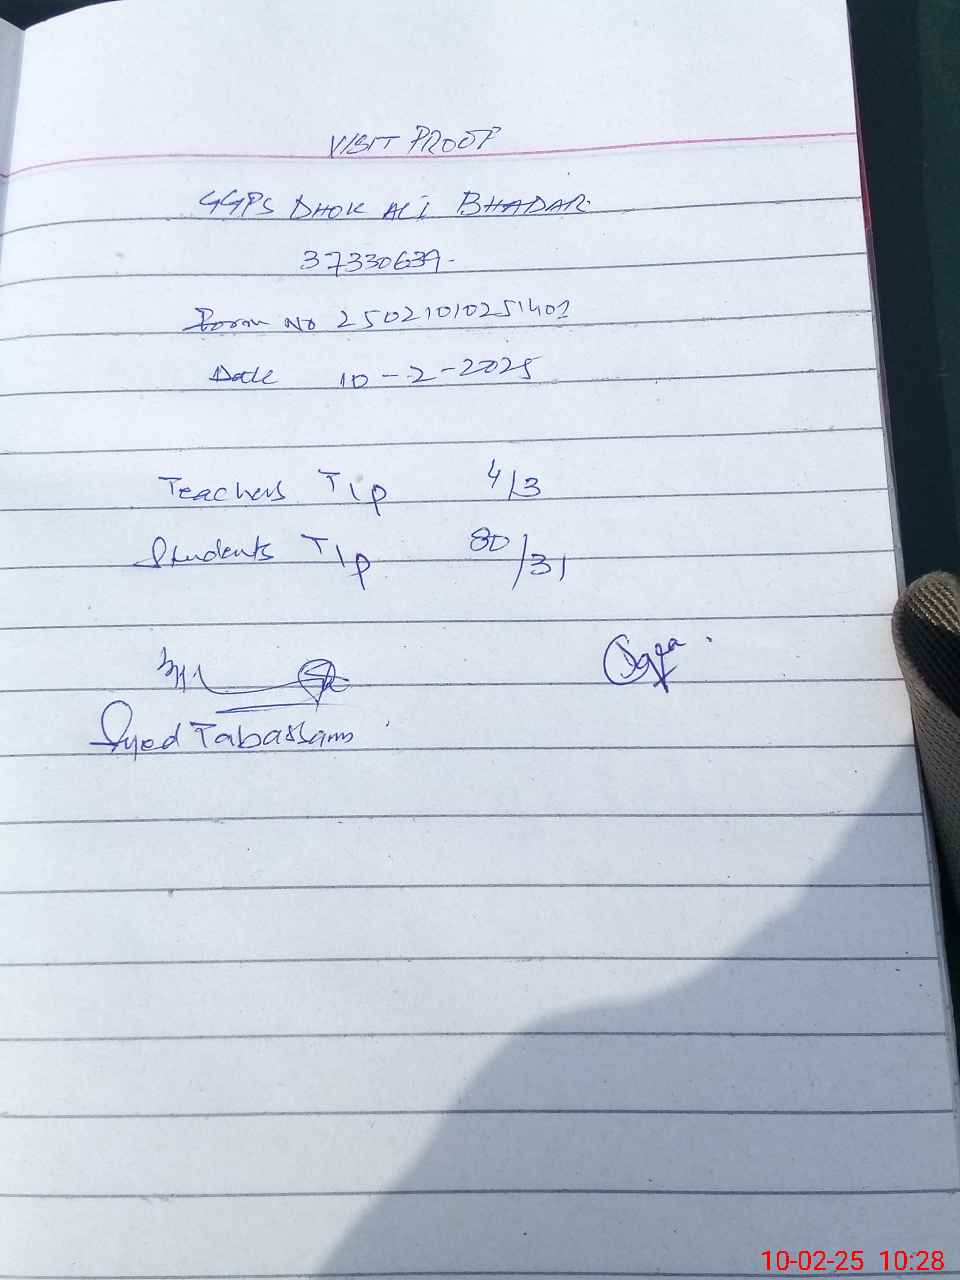 VISIT PROOF
GGPS DHOK ALI BHADAR
37330639.
Form No 25021010251401
Date 10-2-2025
Teachers T/P 4/3
Students T/P 80/31
Syed Tabassam
10-02-25 10:28